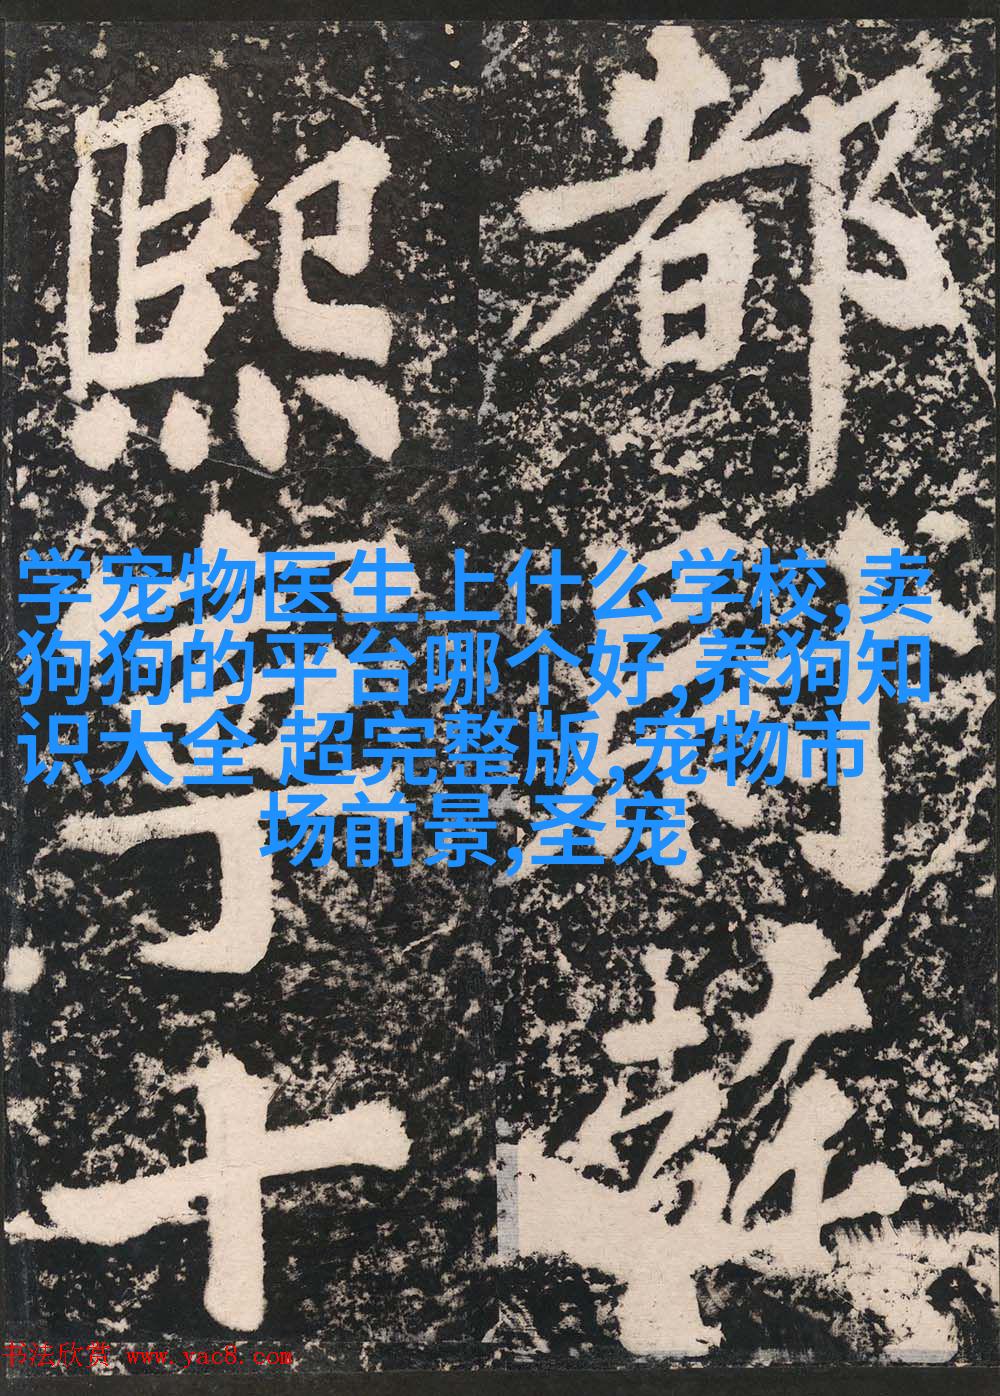 都
熙
十
学宠物医生上什么学校,卖
狗狗的平台哪个好,养狗知
识大全 超完整版,宠物市
场前景,圣宠
书法欣赏 www.yac8.com